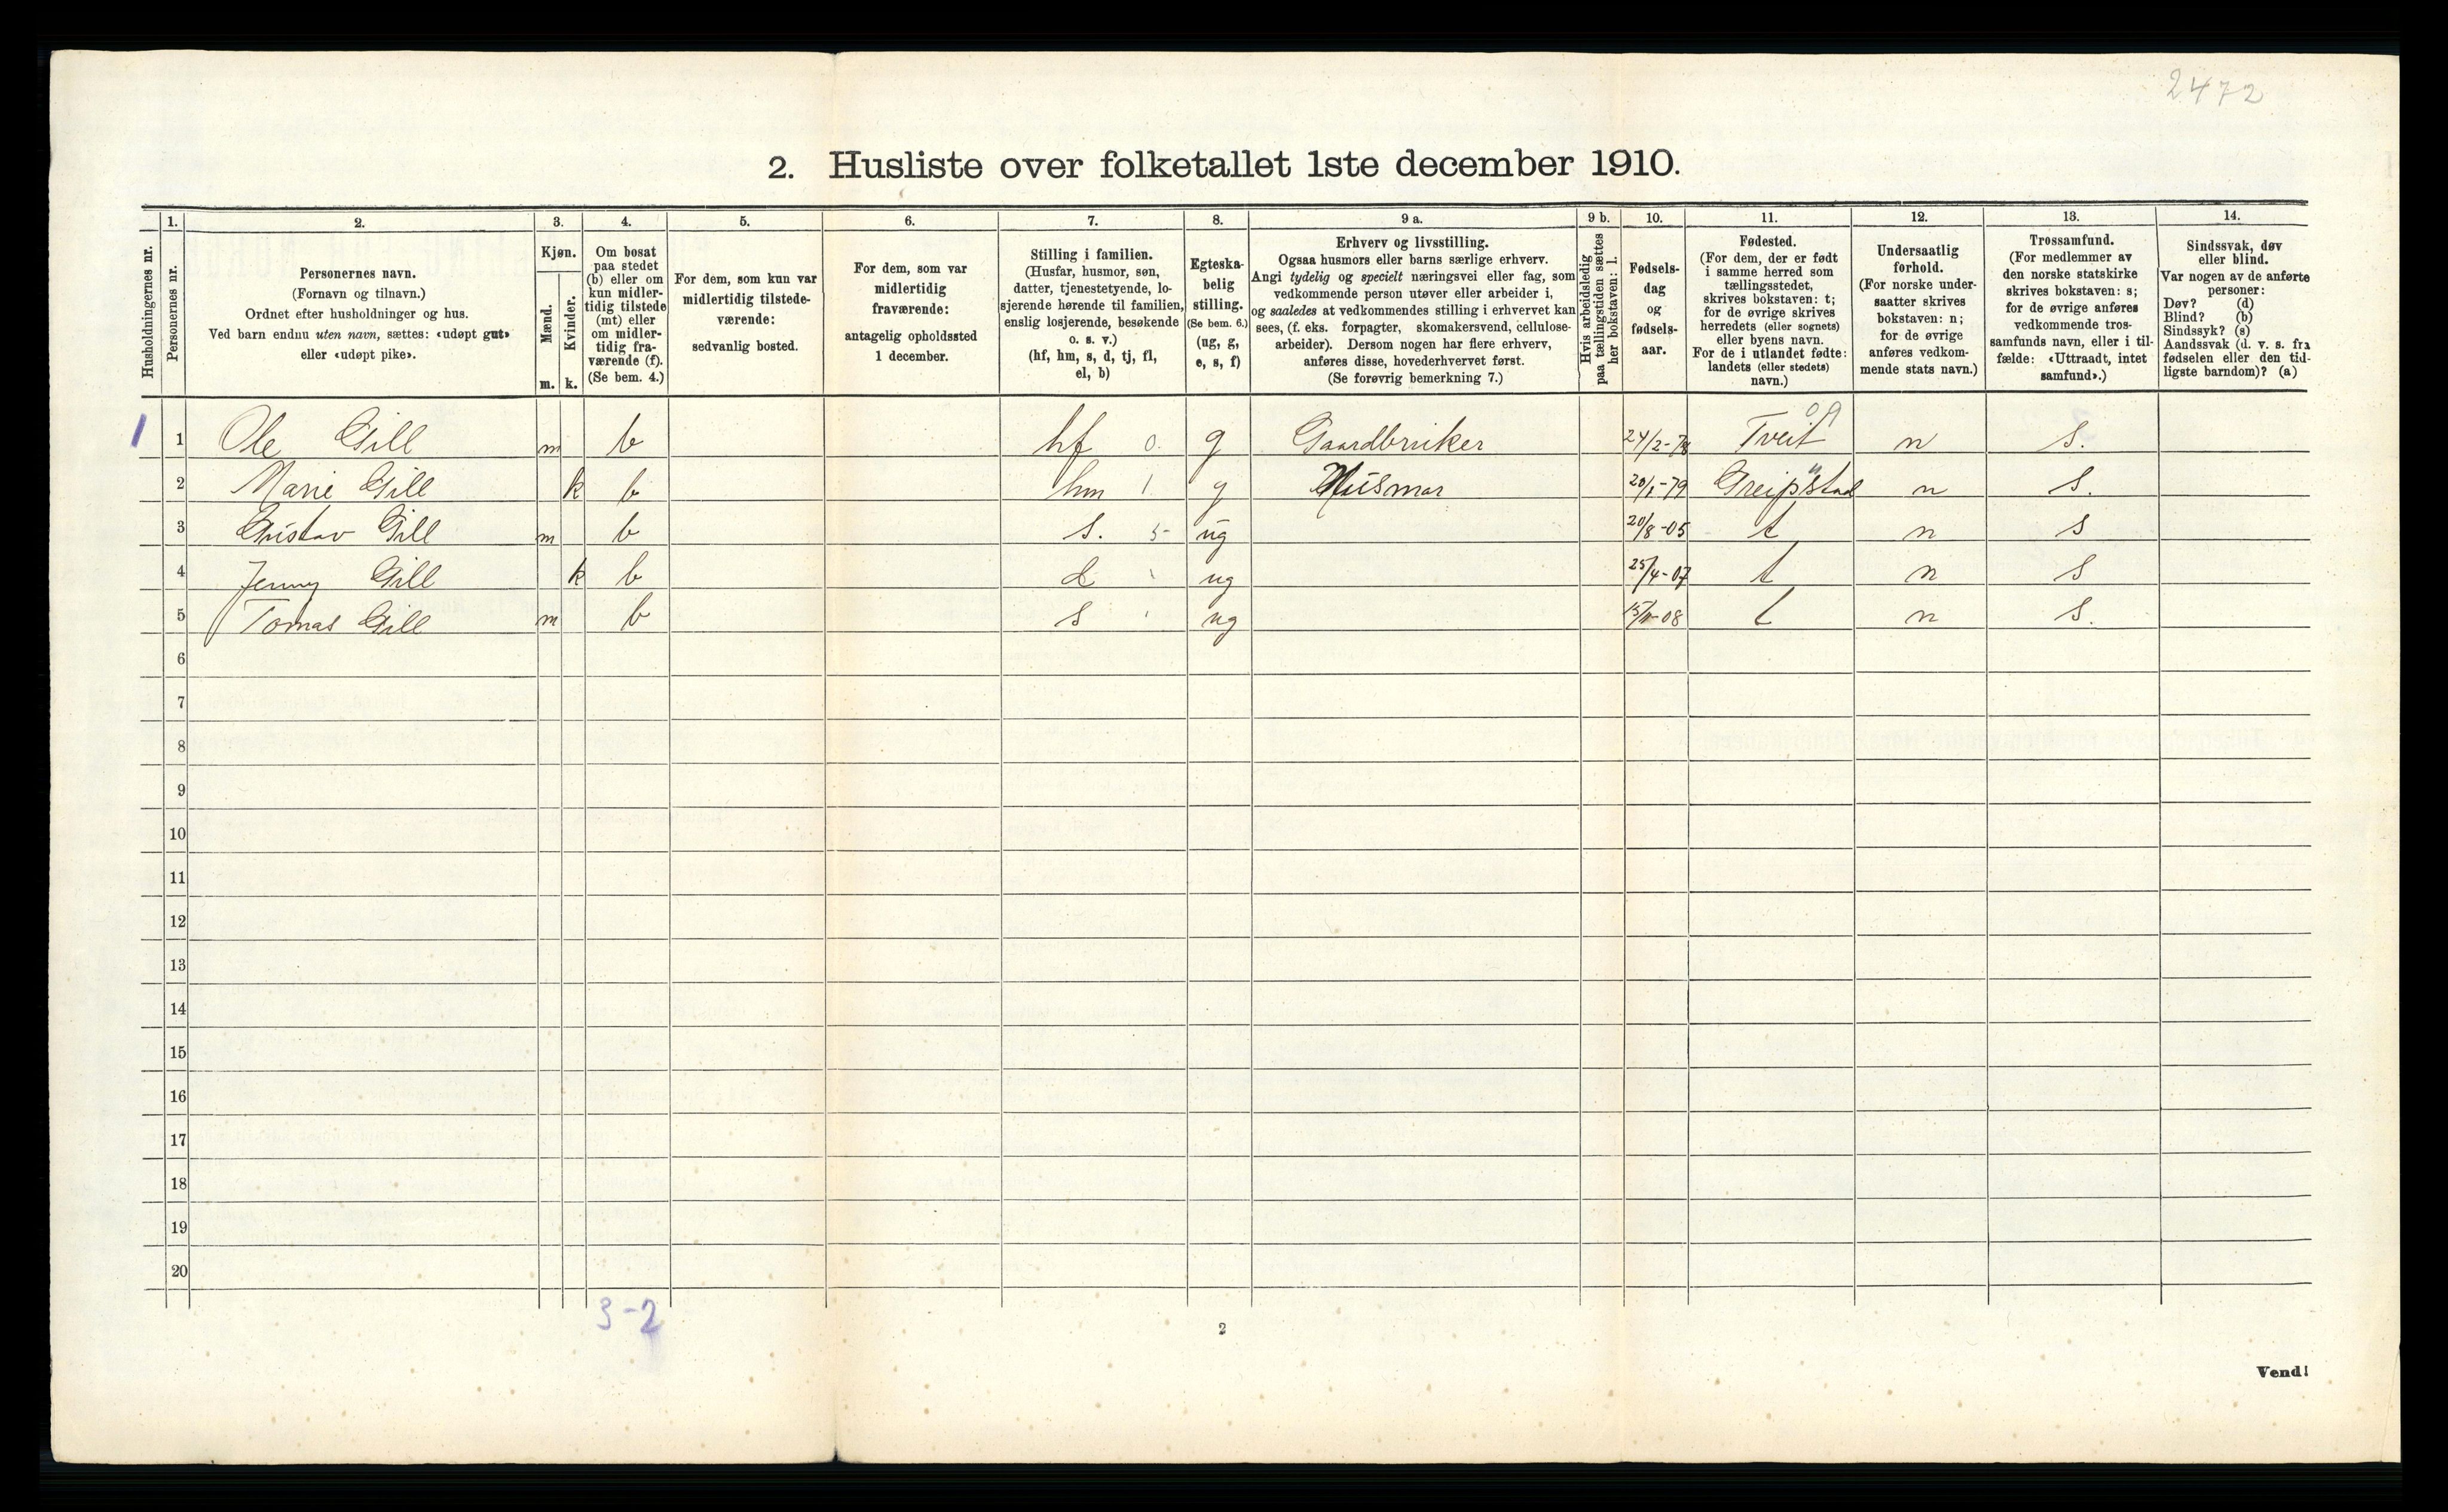 2472
2. Husliste over folketallet 1ste december 1910.
Husholdningernes nr.
1. Personernes nr.
2. Personernes navn. (Fornavn og tilnavn.) Ordnet efter husholdninger og hus. Ved barn endnu uten navn, sættes: «udøpt gut» eller «udøpt pike».
3. Kjøn. Mænd. m. Kvinder. k.
4. Om bosat paa stedet (b) eller om kun midlertidig tilstede (mt) eller om midlertidig fraværende (f). (Se bem. 4.)
5. For dem, som kun var midlertidig tilstedeværende: sedvanlig bosted.
6. For dem, som var midlertidig fraværende: antagelig opholdssted 1 december.
7. Stilling i familien. (Husfar, husmor, søn, datter, tjenestetyende, losjerende hørende til familien, enslig losjerende, besøkende o. s. v.) (hf, hm, s, d, tj, fl, el, b)
8. Egteskabelig stilling. (Se bem. 6.) (ug, g, e, s, f)
9 a. Erhverv og livsstilling. Ogsaa husmors eller barns særlige erhverv. Angi tydelig og specielt næringsvei eller fag, som vedkommende person utøver eller arbeider i, og saaledes at vedkommendes stilling i erhvervet kan sees, (f. eks. forpagter, skomakersvend, cellulosearbeider). Dersom nogen har flere erhverv, anføres disse, hovederhvervet først. (Se forøvrig bemerkning 7.)
9 b. Hvis arbeidsledig paa tællingstiden sættes her bokstaven: l.
10. Fødselsdag og fødselsaar.
11. Fødested. (For dem, der er født i samme herred som tællingsstedet, skrives bokstaven: t; for de øvrige skrives herredets (eller sognets) eller byens navn. For de i utlandet fødte: landets (eller stedets) navn.)
12. Undersaatlig forhold. (For norske undersaatter skrives bokstaven: n; for de øvrige anføres vedkommende stats navn.)
13. Trossamfund. (For medlemmer av den norske statskirke skrives bokstaven: s; for de øvrige anføres vedkommende trossamfunds navn, eller i tilfælde: «Uttraadt, intet samfund».)
14. Sindssvak, døv eller blind. Var nogen av de anførte personer: Døv? (d) Blind? (b) Sindssyk? (s) Aandssvak (d. v. s. fra fødselen eller den tidligste barndom)? (a)
1 1 Ole Gill m b hf 0. g Gaardbruker 24/2-78 Tveit 09 n s.
2 Marie Gill k b hm 1 g Husmor 20/1-79 Greipstad " n s.
3 Gustav Gill m b s. 5- ug 20/8-05 t n s
4 Jenny Gill k b d ug 25/4-07 t n s
5 Tomas Gill m b s ug t n s.
6
7
8
9
10
11
12
13
14
15
16
17
18
19
20
3-2
2
Vend!